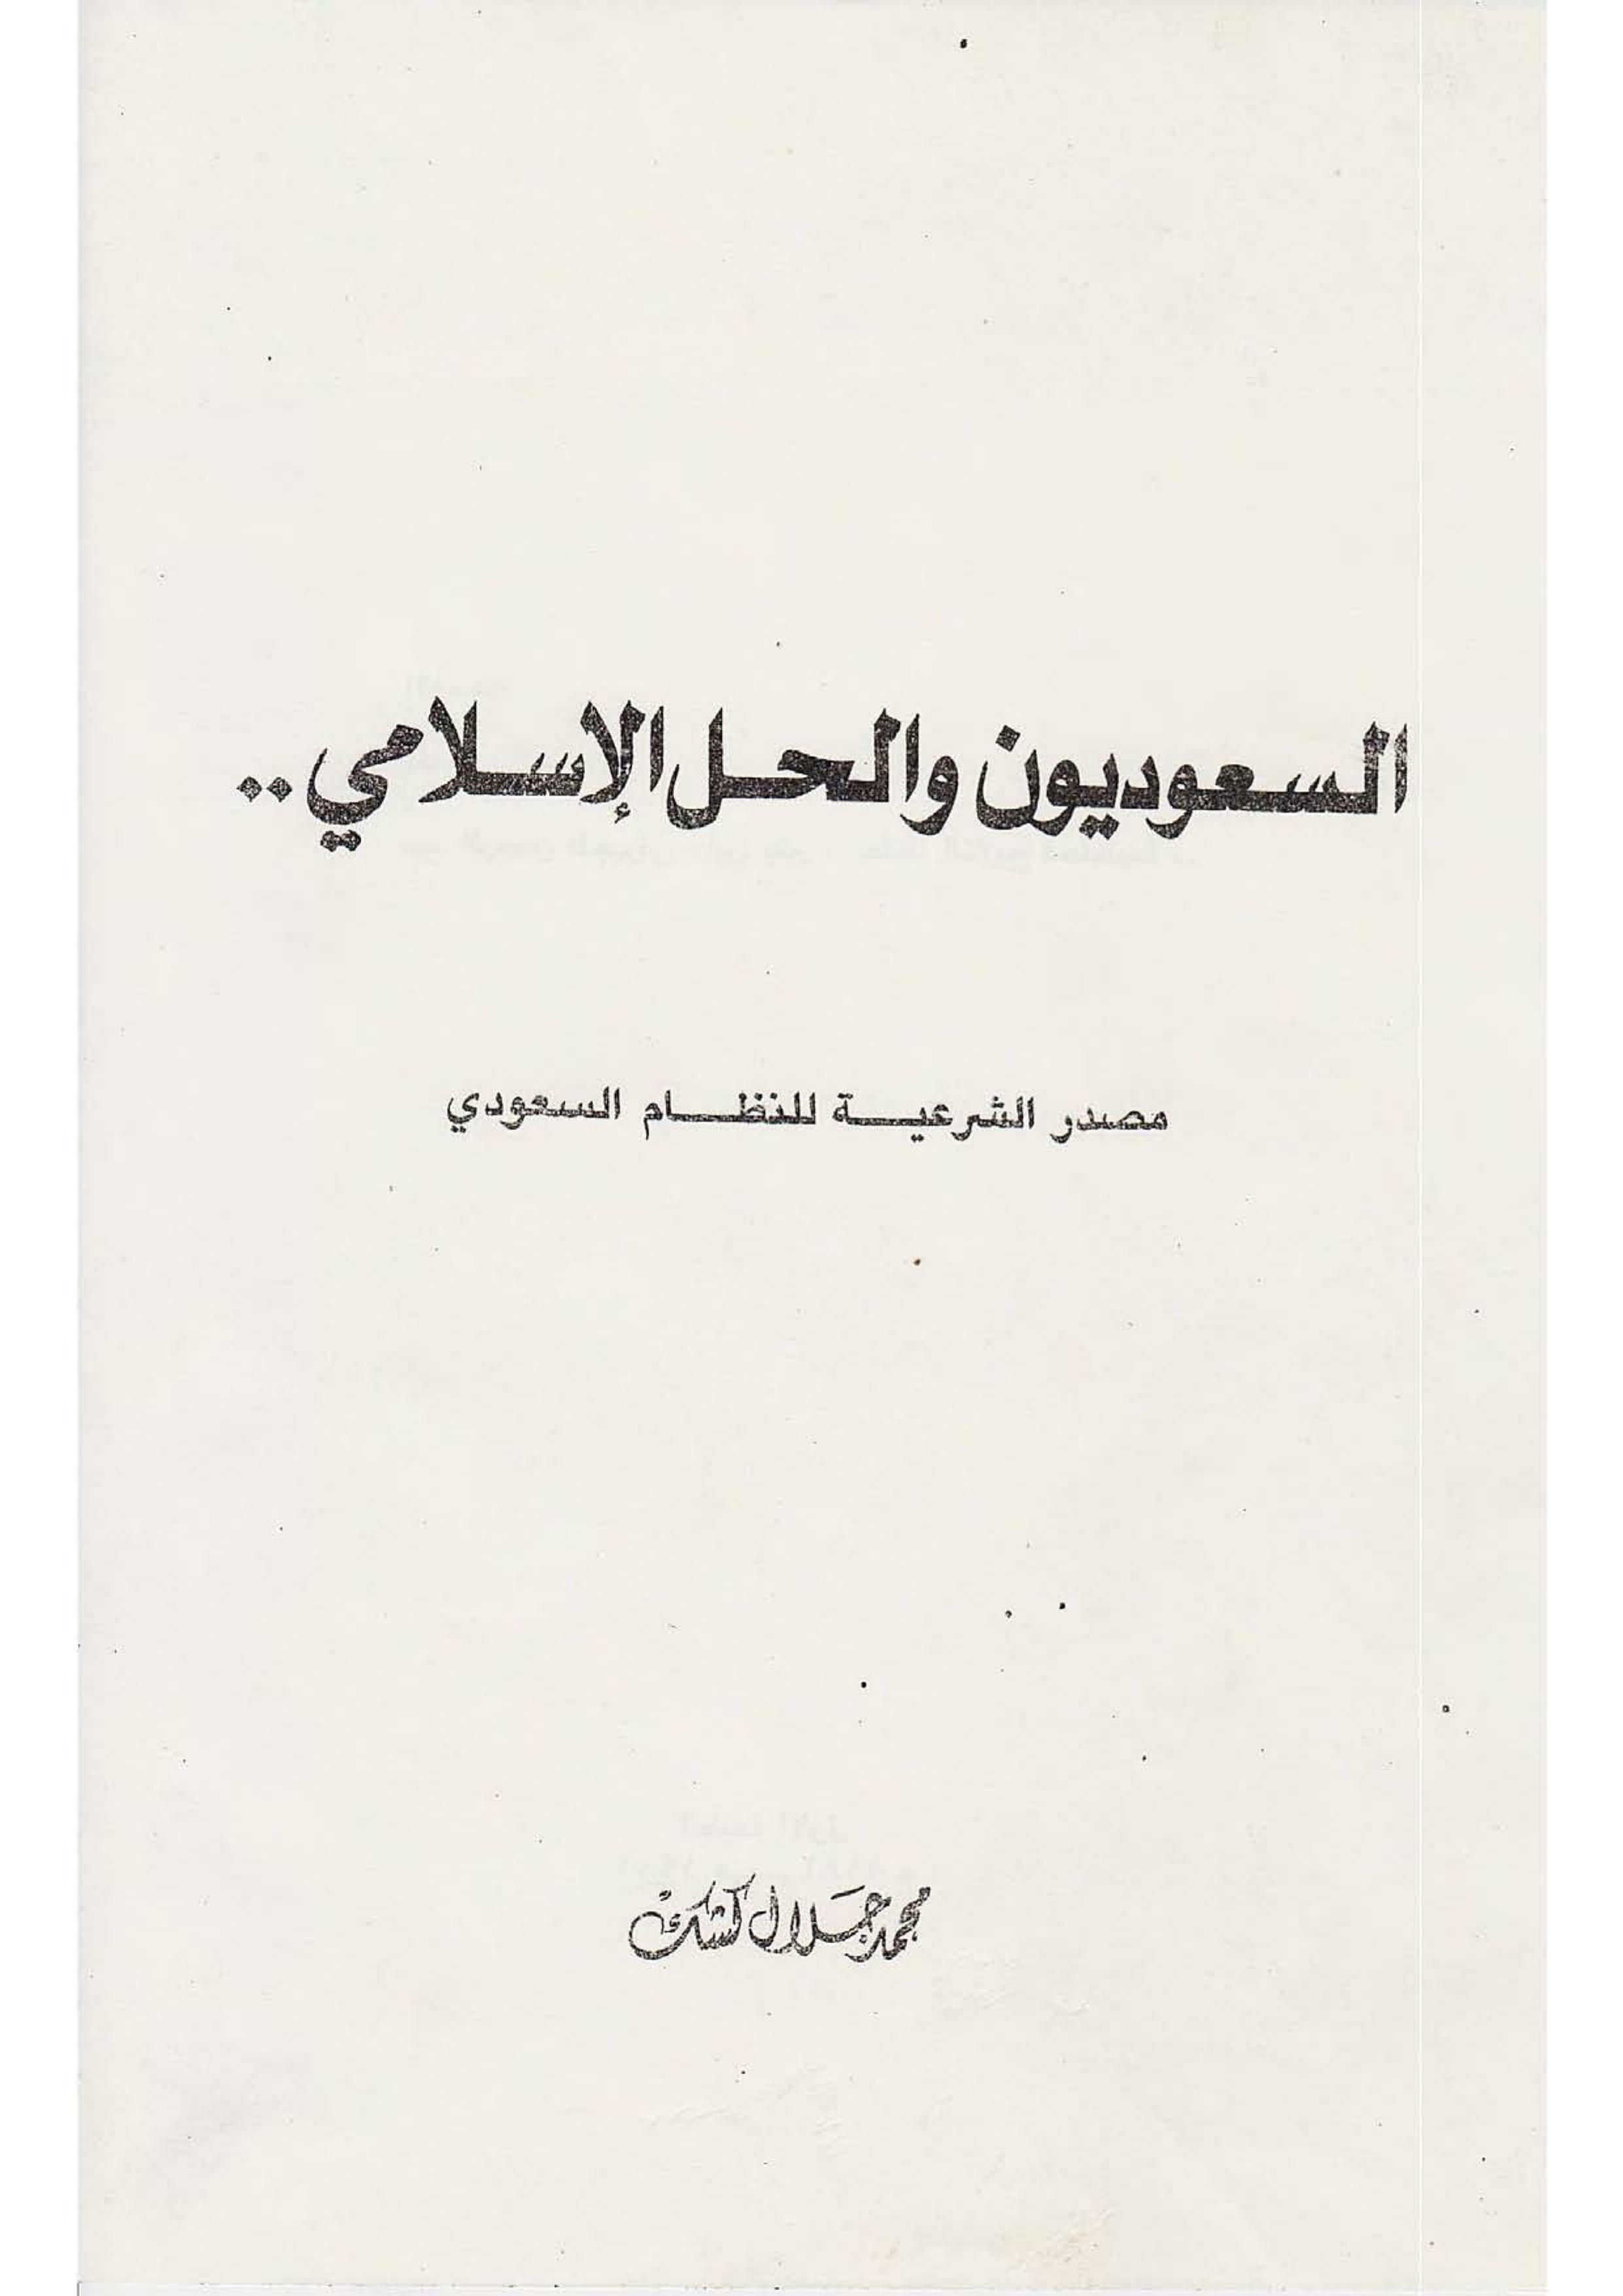 السعوديون والحل الإسلامي ..
مصدر الشرعية للنظام السعودي
محمد جلال كشك